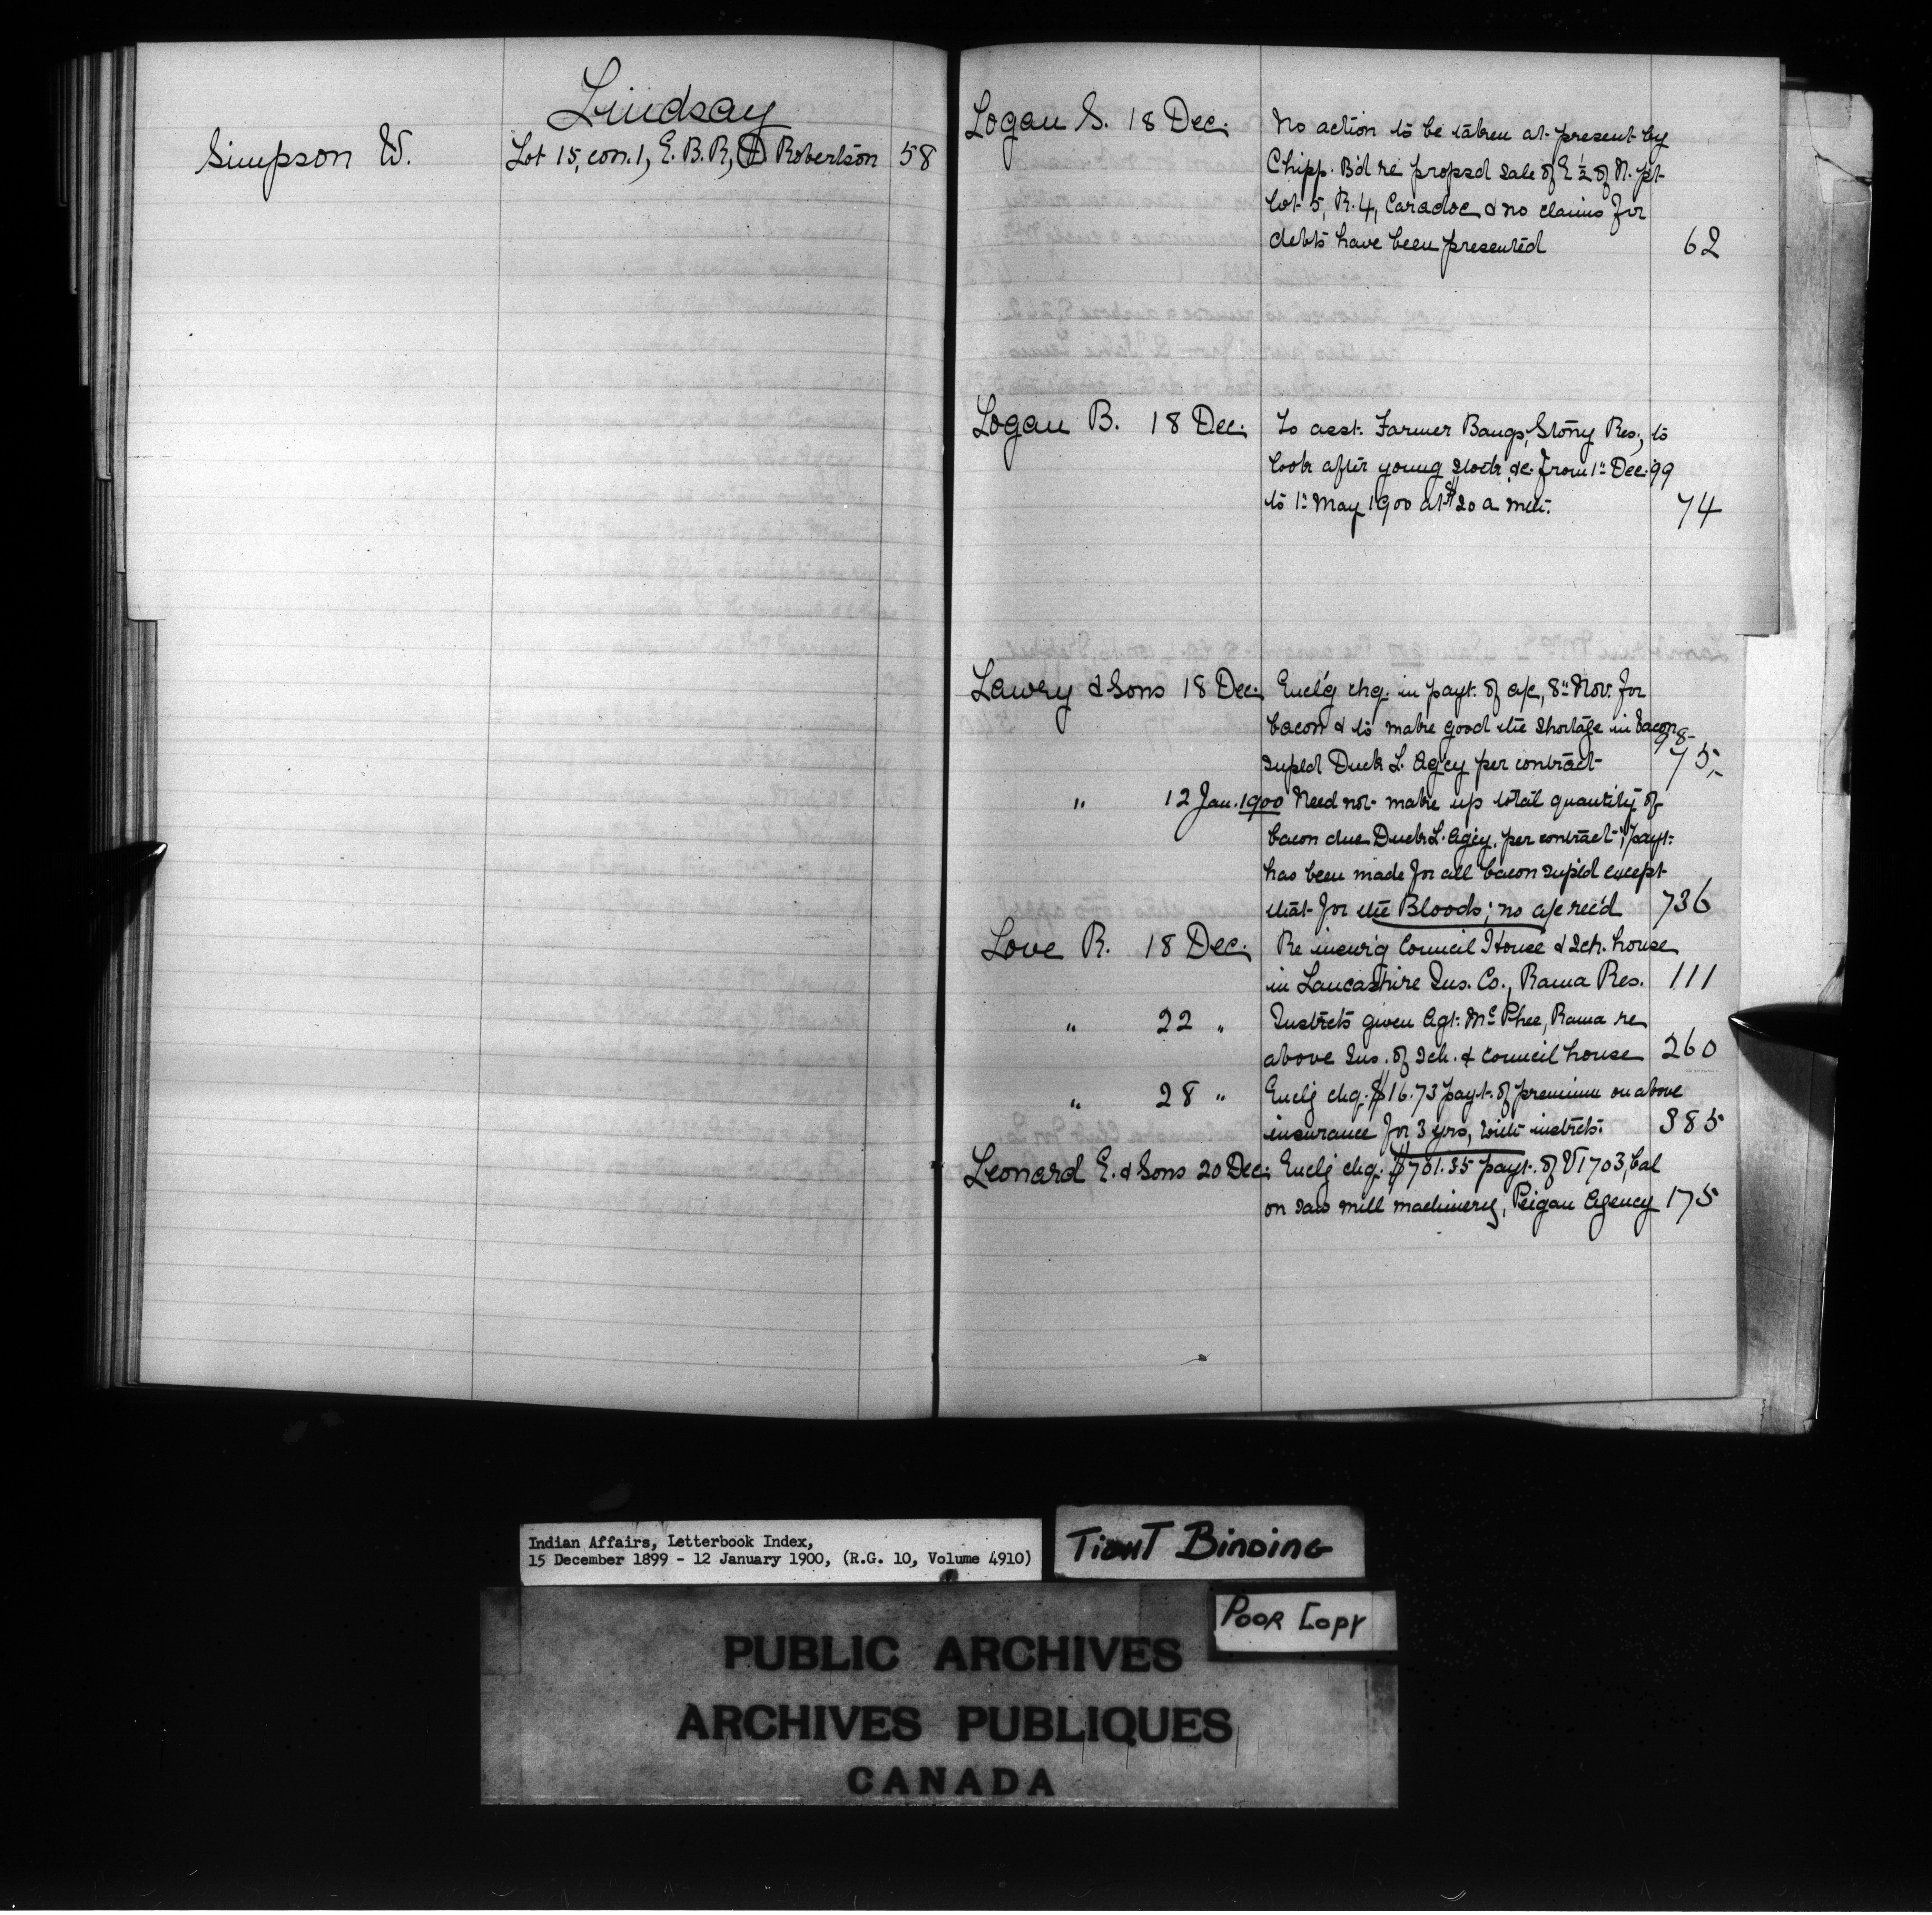 Lindsay
Simpson W. Lot 15, con. 1, E. B. R, D Robertson 58
Logan S. 18 Dec. No action to be taken at present by
Chipp. B'd re propsd sale of E ½ of N. pt
lot 5, R. 4, Caradoc & no claims for
debts have been presented 62
Logan B. 18 Dec. To asst. Farmer Bangs, Stony Res., to
look after young stock &c. from 1st Dec. '99
to 1st May 1900 at $20 a mth. 74
Lawry & Sons 18 Dec. Encl'g chq. in payt. of a/c, 8th Nov. for
bacon & to make good the shortage in bacon 98-
supld Duck L. Ag'cy per contract 75,
" 12 Jan. 1900 Need not make up total quantity of
bacon due Duck L. Agcy, per contract; payt.
has been made for all bacon supl'd except
that for the Bloods; no a/c rec'd 736
Love R. 18 Dec. Re insur'g Council House & Sch. house
in Lancashire Ins. Co., Rama Res. 111
" 22 " Instrcts given Agt. McPhee, Rama re
above Ins. of Sch. & Council house 260
" 28 " Enclg chq. $16.73 payt. of premium on above
insurance for 3 yrs, with instrcts. 385
Leonard E. & Sons 20 Dec. Enclg chq. $701.35 payt. of V1703, bal
on saw mill machinery, Peigan Agency 175
Indian Affairs, Letterbook Index,
15 December 1899 - 12 January 1900, (R.G. 10, Volume 4910)
TIGHT BINDING
POOR COPY
PUBLIC ARCHIVES
ARCHIVES PUBLIQUES
CANADA